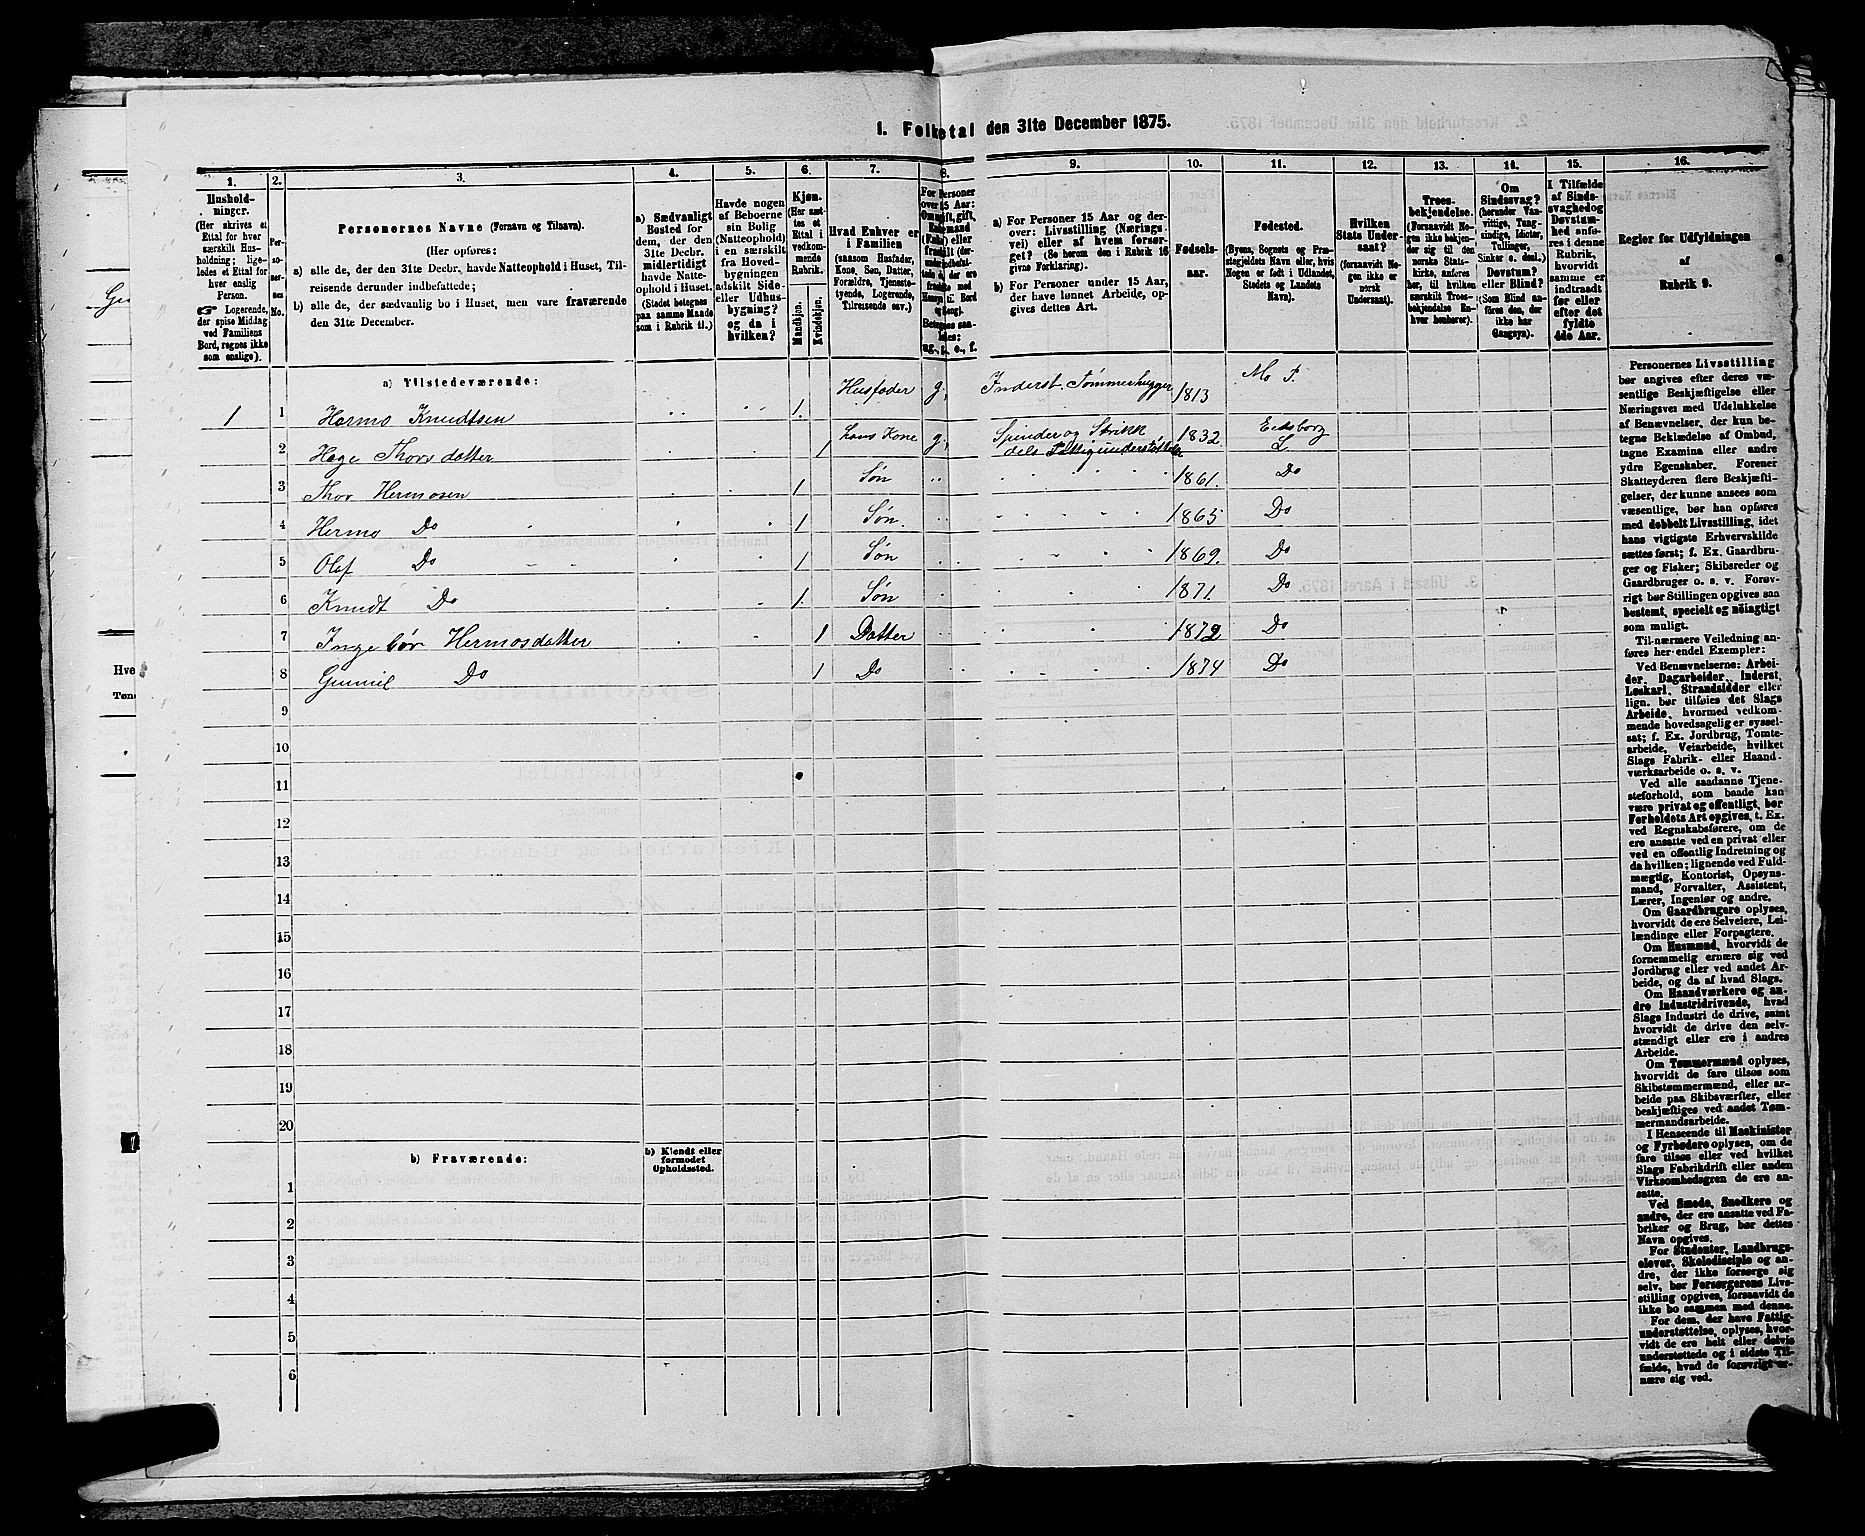 1. Folketal den 31te December 1875.
1.
2.
3.
4.
5.
6.
7.
8.
9.
10.
11.
12.
13.
14.
15.
16.
Hushold-
ninger.
(Her skrives et
Ettal for hver
særskilt Hus-
holdning; lige-
ledes et Ettal for
hver enslig
Person.
☞ Logerende,
der spise Middag
ved Familiens
Bord, regnes ikke
som enslige).
Per-
so-
ner-
nes
No.
Personernes Navne (Fornavn og Tilnavn).
(Her opføres:
a) alle de, der den 31te Decbr. havde Natteophold i Huset, Til-
reisende derunder indbefattede;
b) alle de, der sædvanlig bo i Huset, men vare fraværende
den 31te December.
a) Sædvanligt
Bosted for
dem, der den
31te Decbr.
midlertidigt
havde Natte-
ophold i Huset.
(Stedet betegnes
paa samme Maade
som i Rubrik 11.)
Havde nogen
af Beboerne
sin Bolig
(Natteophold)
i en særskilt
fra Hoved-
bygningen
adskilt Side-
eller Udhus-
bygning?
og da i
hvilken?
Kjøn.
(Her sæt-
tes et
Ettal i
vedkom-
mende
Rubrik.
Mandkjøn.
Kvindekjøn.
Hvad Enhver er
i Familien
(saasom Husfader,
Kone, Søn, Datter,
Forældre, Tjeneste-
tyende, Logerende,
Tilreisende osv.)
For Personer
over 15 Aar:
a) For Personer 15 Aar og der-
over: Livsstilling (Nærings-
vei) eller af hvem forsør-
get? (Se herom den i Rubrik 16
givne Forklaring).
b) For Personer under 15 Aar,
der have lønnet Arbeide, op-
gives dettes Art.
Fødsels-
aar.
Fødested.
(Byens, Sognets og Præ-
stegjeldets Navn eller, hvis
Nogen er født i Udlandet,
Stedets og Landets
Navn).
Hvilken
Stats Under-
saat?
(forsaavidt No-
gen ikke er
norsk
Undersaat).
Troes-
bekjendelse.
(Forsaavidt No-
gen ikke bekjen-
der sig til den
norske Stats-
kirke, anføres
her, til hvilken
særskilt Troes-
bekjendelse En-
hver henhører).
Om
Sindssvag?
(herunder Van-
vittige, Tung-
sindige, Idioter,
Tullinger,
Sinker o. desl.)
Døvstum?
eller Blind?
(Som Blind an-
føres den, der
ikke har
Gangsyn).
I Tilfælde
af Sinds-
svaghed og
Døvstum-
hed anfø-
res i denne
Rubrik,
hvorvidt
samme er
indtraadt
før eller
efter det
fyldte
4de Aar.
Regler for Udfyldningen
af
Rubrik 9.
a) Tilstedeværende:
1 1 Hermo Knudtsen 1. Husfader g. Inderst. Tømmerhugger 1813 Mo P.
2 Hæge Thorsdatter 1 hans Kone g. Spinder og Strikk dels Fattigunderstøttelse 1832 Eidsborg L
3 Thor Hermosen 1 Søn 1861. Do
4 Hermo Do 1 Søn. 1865 Do
5 Olaf Do 1 Søn 1869. Do
6 Knudt Do 1. Søn 1871. Do
7 Ingebør Hermosdatter 1 Datter 1872 Do
8 Gunnil Do 1 Do 1874 Do
9
10
11
12
13
14
15
16
17
18
19
20
b) Fraværende:
b) Kjendt eller
formodet
Opholdssted.
1
2
3
4
5
6
Personernes Livsstilling
bør angives efter deres væ-
sentlige Beskjæftigelse eller
Næringsvei med Udelukkelse
af Benævnelser, der kun be-
tegne Beklædelse af Ombud,
tagne Examina eller andre
ydre Egenskaber. Forener
Skatteyderen flere Beskjæfti-
gelser, der kunne ansees som
væsentlige, bør han opføres
med dobbelt Livsstilling, idet
hans vigtigste Erhvervskilde
sættes først; f. Ex. Gaardbru-
ger og Fisker; Skibsreder og
Gaardbruger o. s. v. Forøv-
rigt bør Stillingen opgives saa
bestemt, specielt og nøiagtigt
som muligt.
Til nærmere Veiledning an-
føres her endel Exempler:
Ved Benævnelserne: Arbei-
der, Dagarbeider, Inderst,
Løskarl, Strandsidder eller
lign. bør tilføies det Slags
Arbeide, hvormed vedkom-
mende hovedsagelig er syssel-
sat; f. Ex. Jordbrug, Tomte-
arbeide, Veiarbeide, hvilket
Slags Fabrik- eller Haand-
værksarbeide o. s. v.
Ved alle saadanne Tjene-
steforhold, som baade kan
være privat og offentligt, bør
Forholdets Art opgives, t. Ex.
ved Regnskabsførere, om de
ere ansatte ved en privat eller
ved en offentlig Indretning og
da hvilken; lignende ved Fuld-
mægtig, Kontorist, Opsyns-
mand, Forvalter, Assistent,
Lærer, Ingeniør og andre.
Om Gaardbrugere oplyses,
hvorvidt de ere Selveiere, Lei-
lændinge eller Forpagtere.
Om Husmænd, hvorvidt de
fornemmelig ernære sig ved
Jordbrug eller ved andet Ar-
beide, og da af hvad Slags.
Om Haandværkere og an-
dre Industridrivende, hvad
Slags Industri de drive, samt
hvorvidt de drive den selv-
stændigt eller ere i andres
Arbeide.
Om Tømmermænd oplyses,
hvorvidt de fare tilsøs som
Skibstømmermænd, eller ar-
beide paa Skibsværfter, eller
beskjæftiges ved andet Tøm-
mermandsarbeide.
I Henseende til Maskinister
og Fyrbødere oplyses, om de
fare tilsøs eller ved hvilket
Slags Fabrikdrift eller anden
Virksomhedsgren de ere an-
satte.
Ved Smede, Snedkere og
andre, der ere ansatte ved Fa-
briker og Brug, bør dettes
Navn opgives.
For Studenter, Landbrugs-
elever, Skoledisciple og an-
dre, der ikke forsørge sig
selv, bør Forsørgerens Livs-
stilling opgives, forsaavidt de
ikke bo sammen med denne.
For dem, der have Fattig-
understøttelse, oplyses, hvor-
vidt de ere helt eller delvis
understøttede og i sidste Til-
fælde, hvad de forøvrigt er-
nære sig ved.